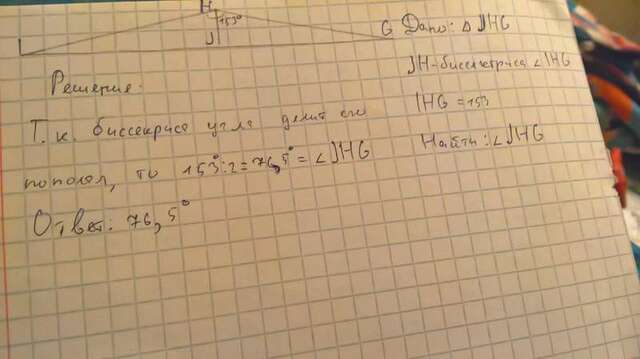 H
153°
J
I
G
Дано: Δ JHG
JH-биссектриса ∠IHG
IHG = 153
Найти: ∠JHG
Решение:
Т. к. биссекриса угла делит его
пополам, то 153°:2=76,5°=∠JHG
Ответ: 76,5°